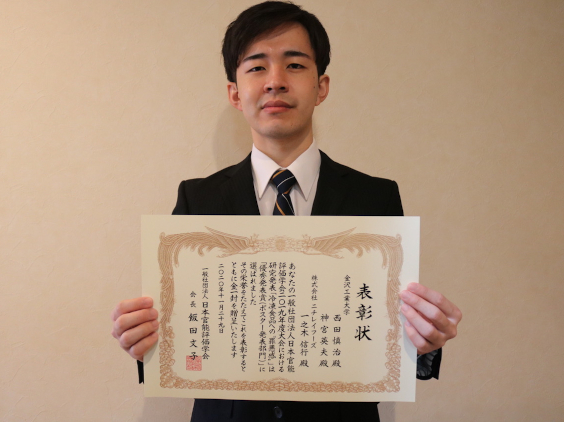 表彰状
金沢工業大学
西田慎治殿
神宮英夫殿
株式会社ニチレイフーズ
一之木信行殿
あなたの一般社団法人日本官能
評価学会二〇一九年度大会における
研究発表「冷凍食品への「罪悪感」は
「優秀発表賞(ポスター発表部門)」に
選ばれました
その栄誉をたたえこれを表彰すると
ともに金一封を贈呈いたします
二〇二〇年十一月二十九日
一般社団法人日本官能評価学会
会長 飯田文子